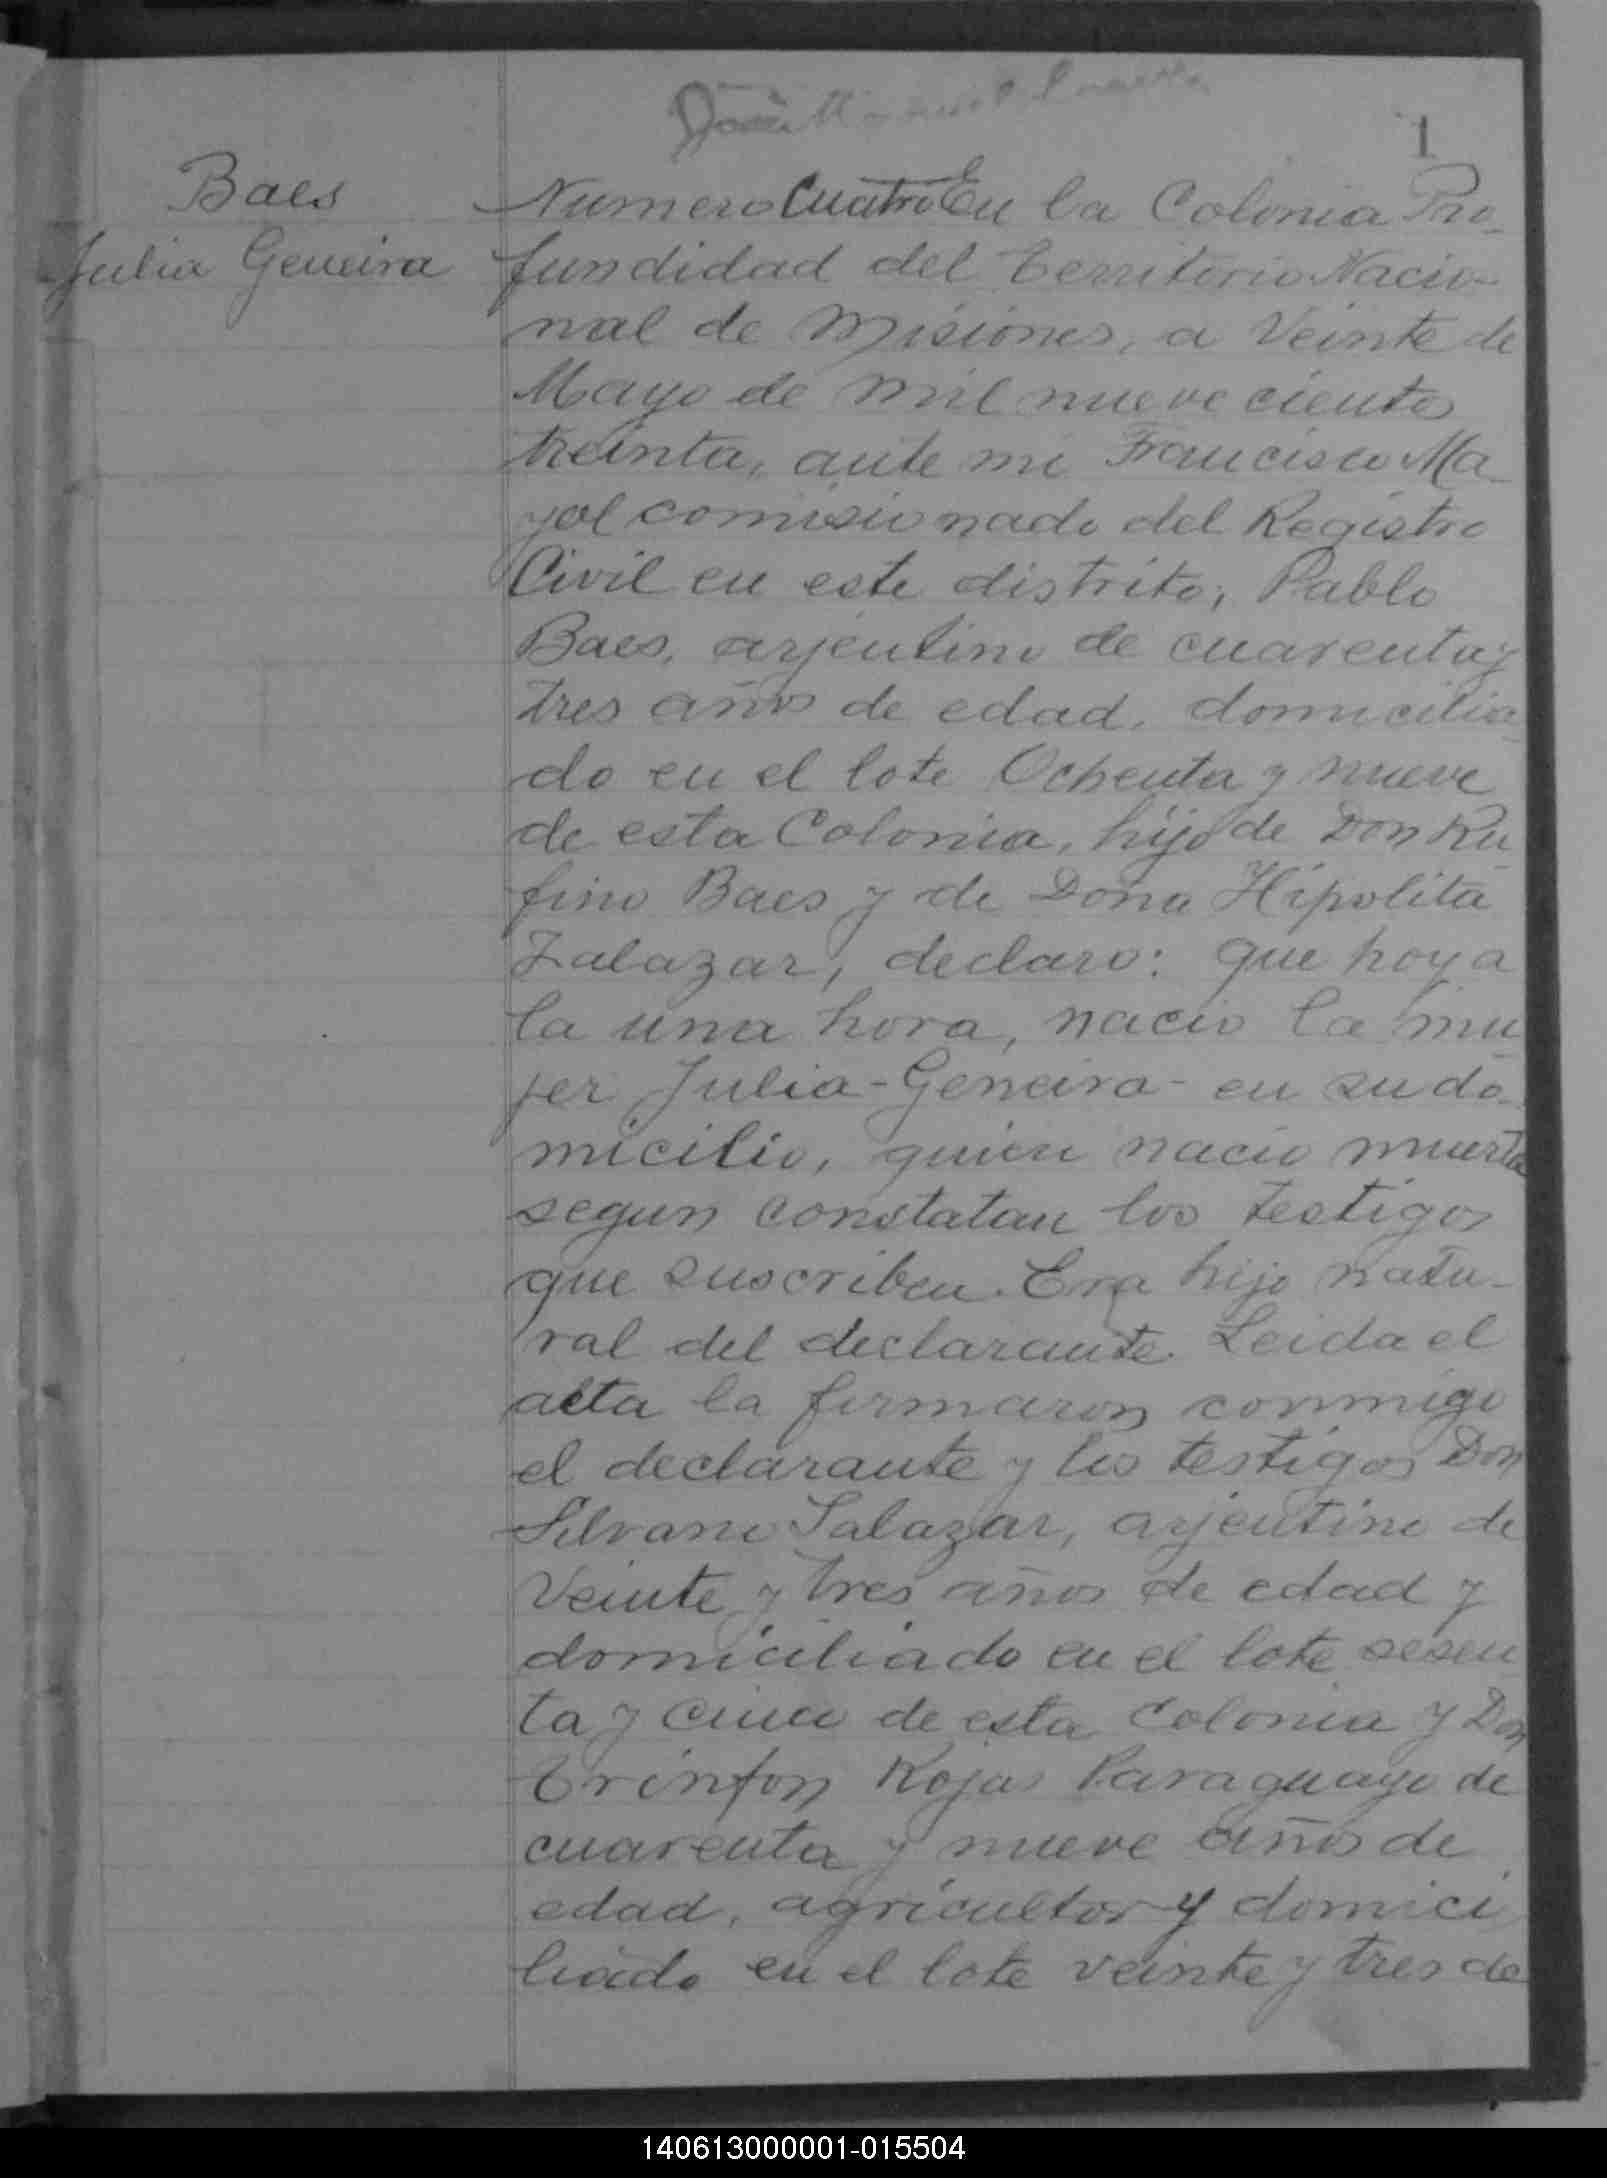 1
Baes
Julia Geneira
Numero Cuatro En la Colonia Pro-
fundidad del territorio Nacio-
nal de Misiones, a Veinte de
Mayo de mil nueve cientos
treinta, ante mi Francisco Ma-
yol comisionado del Registro
Civil en este distrito, Pablo
Baes, arjentino de cuarenta y
tres años de edad, domicilia-
do en el lote Ochenta y nueve
de esta Colonia, hijo de Don Ru-
fino Baes y de Doña Hipolita
Zalazar, declaro: que hoy a
la una hora, nacio la mu-
jer Julia-Geneira- en su do-
micilio, quien nacio muerta
segun constatan los testigos
que suscriben. Era hijo natu-
ral del declarante. Leida el
acta la firmaron conmigo
el declarante y los testigos Don
Silvano Salazar, arjentino de
Veinte y tres años de edad y
domiciliado en el lote sesen
ta y cinco de esta Colonia y Don
Trinfon Rojas Paraguayo de
cuarenta y nueve años de
edad, agricultor y domici
liado en el lote veinte y tres de
140613000001-015504